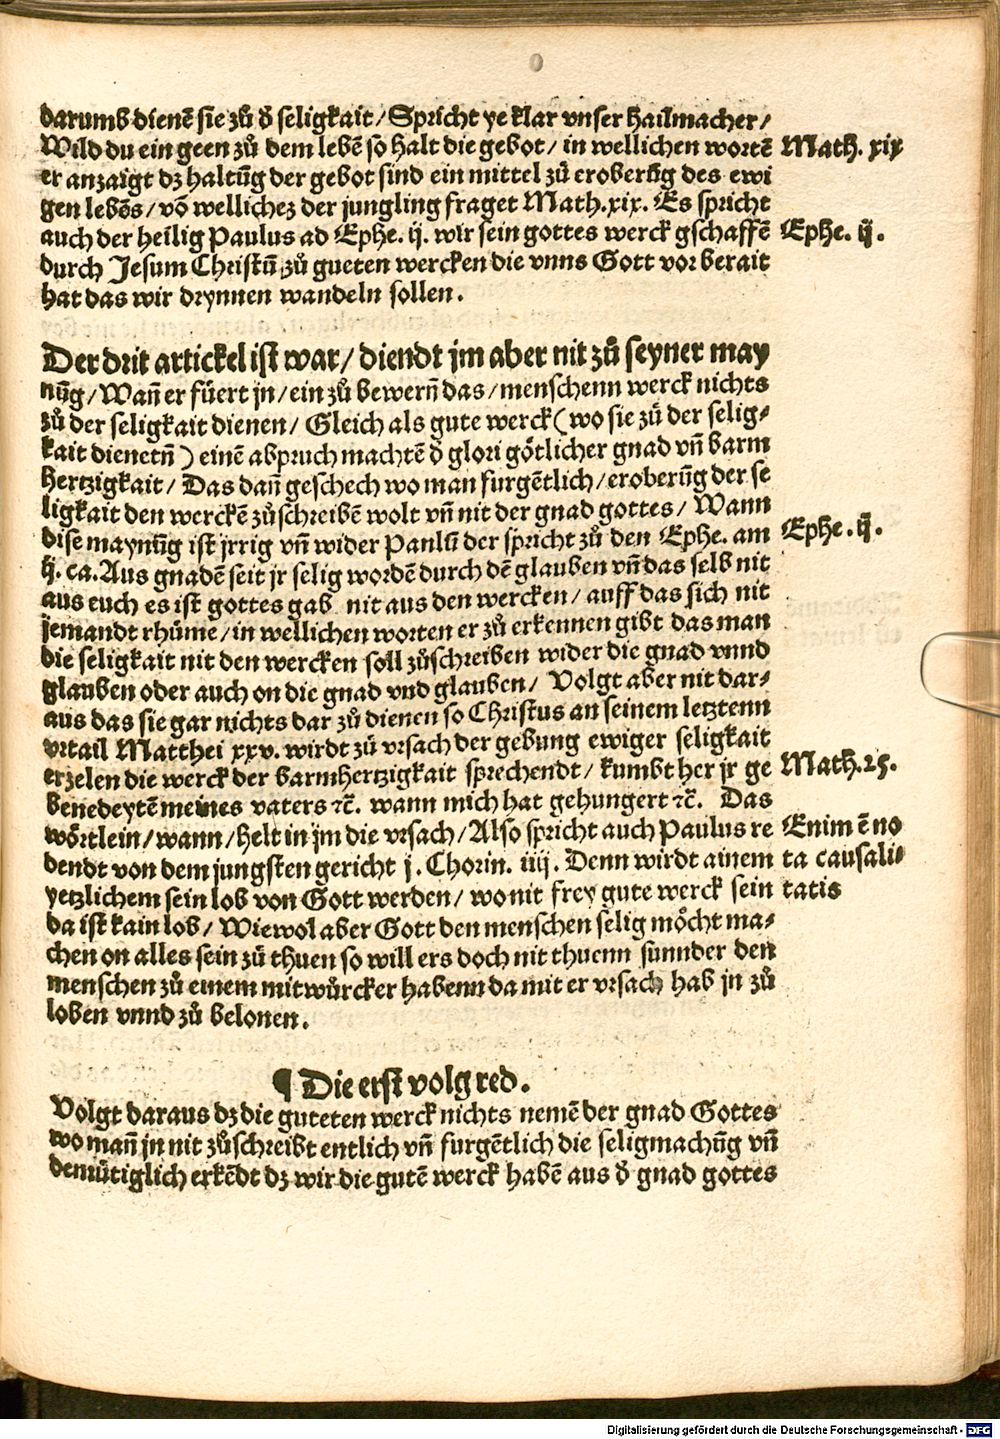 darumb dienē sie zů d̕ seligkait / Spricht ye klar vnser hailmacher /
Wild du ein geen zů dem lebē so halt die gebot / in wellichen wortē
Math. xix
er anzaigt dz haltūg der gebot sind ein mittel zů eroberūg des ewi
gen lebēs / vō wellichez der jungling fraget Math. xix. Es spricht
auch der heilig Paulus ad Ephe. ij. wir sein gottes werck gschaffē
Ephe. ij.
durch Jesum Christū zů gueten wercken die vnns Gott vor berait
hat das wir drynnen wandeln sollen.
Der drit artickel ist war / diendt jm aber nit zů seyner may
nūg / Wañ er füert jn / ein zů bewern̄ das / menschenn werck nichts
zů der seligkait dienen / Gleich als gute werck ( wo sie zů der selig⸗
kait dienetn̄ ) einē abpruch machtē d̕ glori götlicher gnad vn̄ barm
hertzigkait / Das dan̄ geschech wo man furgētlich / eroberūg der se
ligkait den werckē zůschreibē wolt vn̄ nit der gnad gottes / Wann
dise maynūg ist jrrig vn̄ wider Panlū der spricht zů den Ephe. am
Ephe. ij.
ij. ca. Aus gnadē seit jr selig wordē durch dē glauben vn̄ das selb nit
aus euch es ist gottes gab nit aus den wercken / auff das sich nit
jemandt rhüme / in wellichen worten er zů erkennen gibt das man
die seligkait nit den wercken soll zůschreiben wider die gnad vnnd
glauben oder auch on die gnad vnd glauben / Volgt aber nit dar⸗
aus das sie gar nichts dar zů dienen so Christus an seinem letztenn
vrtail Matthei xxv. wirdt zů vrsach der gebung ewiger seligkait
erzelen die werck der barmhertzigkait sprechendt / kumbt her jr ge
Math. 25.
benedeytē meines vaters ꝛc̄. wann mich hat gehungert ꝛc̄. Das
wörtlein / wann / helt in jm die vrsach / Also spricht auch Paulus re
Enim ē no
dendt von dem jungsten gericht j. Chorin. iiij. Denn wirdt ainem
ta causali⸗
yetzlichem sein lob von Gott werden / wo nit frey gute werck sein
tatis
da ist kain lob / Wiewol aber Gott den menschen selig möcht ma⸗
chen on alles sein zů thuen so will ers doch nit thuenn sunnder den
menschen zů einem mitwürcker habenn da mit er vrsach hab jn zů
loben vnnd zů belonen.
¶ Die erst volg red.
Volgt daraus dz die guteten werck nichts nemē der gnad Gottes
wo man̄ jn nit zůschreibt entlich vn̄ furgētlich die seligmachūg vn̄
demütiglich erkēdt dz wir die gutē werck habē aus d̕ gnad gottes
Digitalisierung gefördert durch die Deutsche Forschungsgemeinschaft - DFG